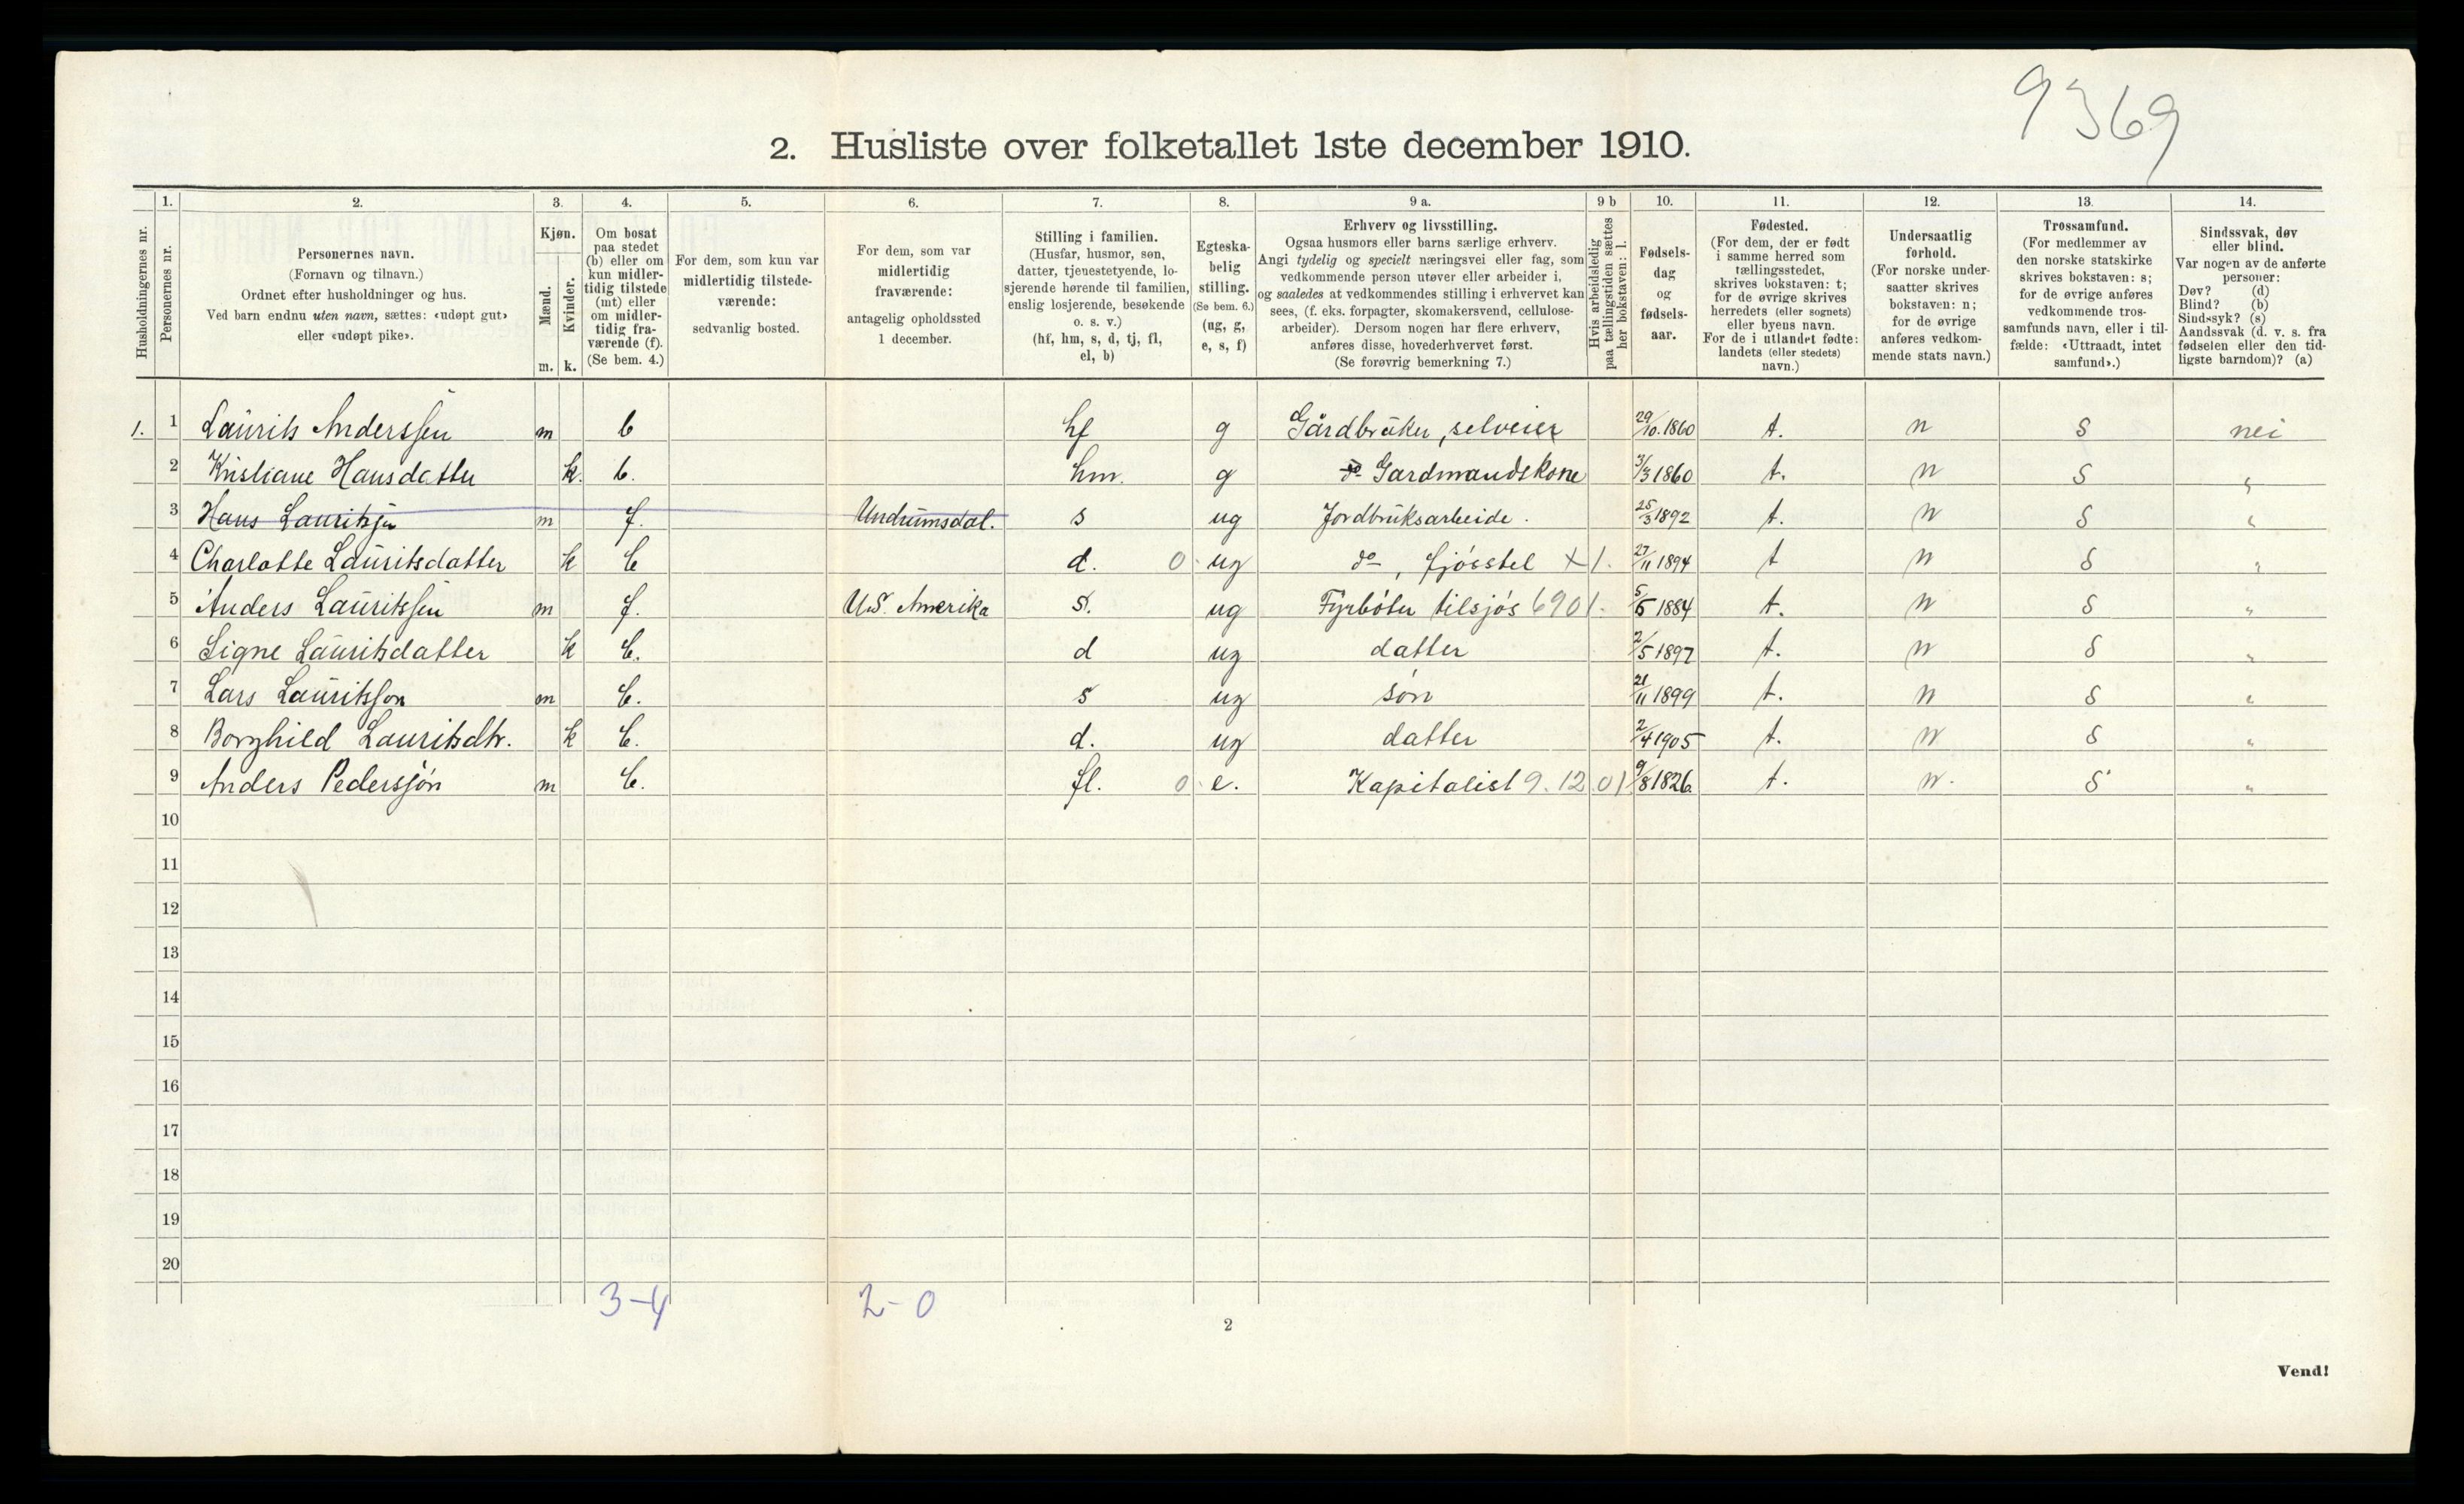 9369
2. Husliste over folketallet 1ste december 1910.
Husholdningernes nr.
1. Personernes nr.
2. Personernes navn. (Fornavn og tilnavn.) Ordnet efter husholdninger og hus. Ved barn endnu uten navn, sættes: «udøpt gut» eller «udøpt pike».
3. Kjøn. Mænd. m. Kvinder. k.
4. Om bosat paa stedet (b) eller om kun midler-tidig tilstede (mt) eller om midler-tidig fra-værende (f). (Se bem. 4.)
5. For dem, som kun var midlertidig tilstede-værende: sedvanlig bosted.
6. For dem, som var midlertidig fraværende: antagelig opholdssted 1 december.
7. Stilling i familien. (Husfar, husmor, søn, datter, tjenestetyende, lo-sjerende hørende til familien, enslig losjerende, besøkende o. s. v.) (hf, hm, s, d, tj, fl, el, b)
8. Egteska-belig stilling. (Se bem. 6.) (ug, g, e, s, f)
9 a. Erhverv og livsstilling. Ogsaa husmors eller barns særlige erhverv. Angi tydelig og specielt næringsvei eller fag, som vedkommende person utøver eller arbeider i, og saaledes at vedkommendes stilling i erhvervet kan sees, (f. eks. forpagter, skomakersvend, cellulose-arbeider). Dersom nogen har flere erhverv, anføres disse, hovederhvervet først. (Se forøvrig bemerkning 7.)
9 b Hvis arbeidsledig paa tællingstiden sættes her bokstaven: l.
10. Fødsels-dag og fødsels-aar.
11. Fødested. (For dem, der er født i samme herred som tællingsstedet, skrives bokstaven: t; for de øvrige skrives herredets (eller sognets) eller byens navn. For de i utlandet fødte: landets (eller stedets) navn.)
12. Undersaatlig forhold. (For norske under-saatter skrives bokstaven: n; for de øvrige anføres vedkom-mende stats navn.)
13. Trossamfund. (For medlemmer av den norske statskirke skrives bokstaven: s; for de øvrige anføres vedkommende tros-samfunds navn, eller i til-fælde: «Uttraadt, intet samfund».)
14. Sindssvak, døv eller blind. Var nogen av de anførte personer: Døv? (d) Blind? (b) Sindssyk? (s) Aandssvak (d. v. s. fra fødselen eller den tid-ligste barndom)? (a)
1. 1 Laurits Anderssen m b hf g Gårdbruker, selveier 29/10.1860 t. n s nei
2 Kristiane Hansdatter k. b. hm. g do Gardmandskone 3/3 1860 t. n s "
3 Hans Lauritsjen m f. Undrumsdal. s ug Jordbruksarbeide. 25/3 1892 t. n s "
4 Charlotte Lauritsdatter k b d. 0 ug do, fjösstel x 1. 27/11 1894 t n s "
5 Anders Lauritssen m f. U.S. Amerika s. ug Fyrböter tilsjös 6901. 5/5 1884 t. n s "
6 Signe Lauritsdatter k b. d ug datter 2/5 1897 t. n s "
7 Lars Lauritsson m b. s ug søn 21/11 1899 t. n s "
8 Borghild Lauritsdtr. k b. d. ug datter 2/4 1905 t. n s "
9 Anders Pedersjön m b. fl. 0 e. Kapitalist 9.12.01 9/8 1826. t. n. s "
10
11
12
13
14
15
16
17
18
19
20
3-4 2-0
2
Vend!